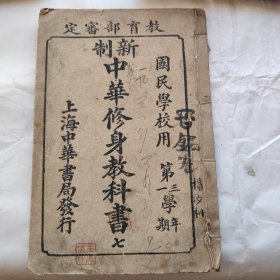 定審部育教
國民學校用
第三學年
第一學期
新制
中華修身教科書
七
上海中華書局發行